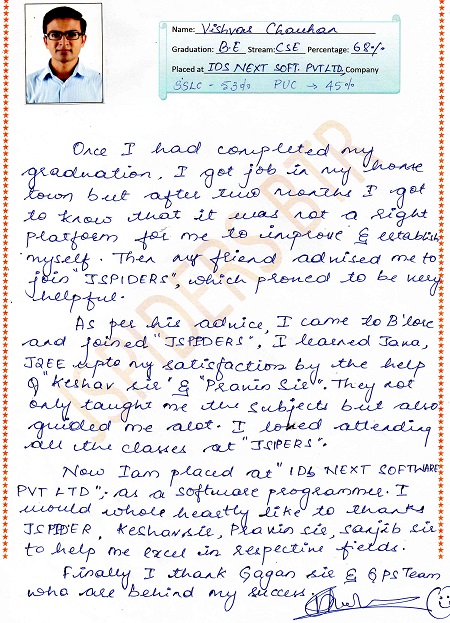 Name: Vishvas Chauhan
Graduation: B.E Stream: CSE Percentage: 68%
Placed at IDS NEXT SOFT. PVT LTD, Company
SSLC - 53% PUC → 45%
Once I had completed my
graduation, I got job in my home
town but after two months I got
to know that it was not a right
platform for me to improve & establish
myself. Then my friend advised me to
join "JSPIDERS", which proned to be very
helpful.
As per his advice, I came to B'lore
and joined "JSPIDERS", I learned Java,
J2EE upto my satisfaction by the help
of "Keshav sir" & "Pravin Sir". They not
only taught me the subjects but also
guided me alot. I loved attending
all the classes at "JSIPERS".
Now Iam placed at "IDS NEXT SOFTWARE
PVT LTD". as a software programmer. I
would whole heartly like to thanks
JSPIDER, Keshavsir, Pravin sir, sanjib sir
to help me excel in respective fields.
Finally I thank Gagan sir & QPS Team
who are behind my success.
JSPIDERS BTR